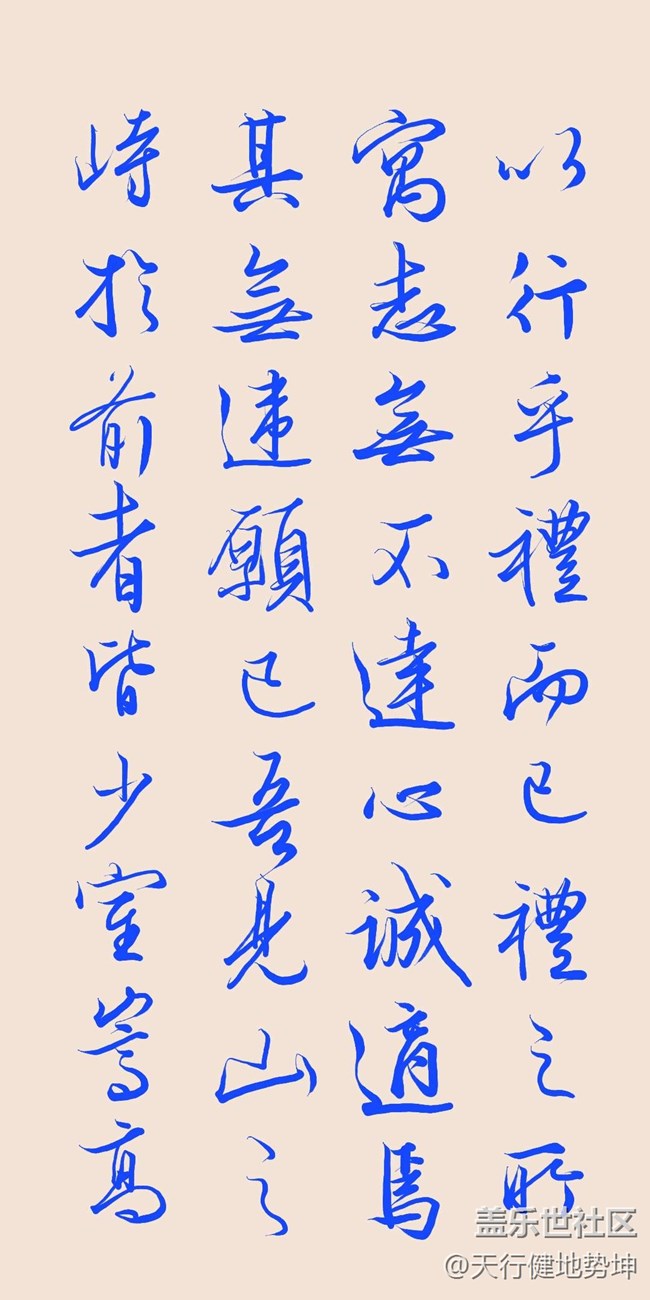 以行乎禮而已禮之所
寓志無不達心誠適焉
其無違願已吾見山之
峙於前者皆少室嵩高
盖乐世社区
@天行健地势坤